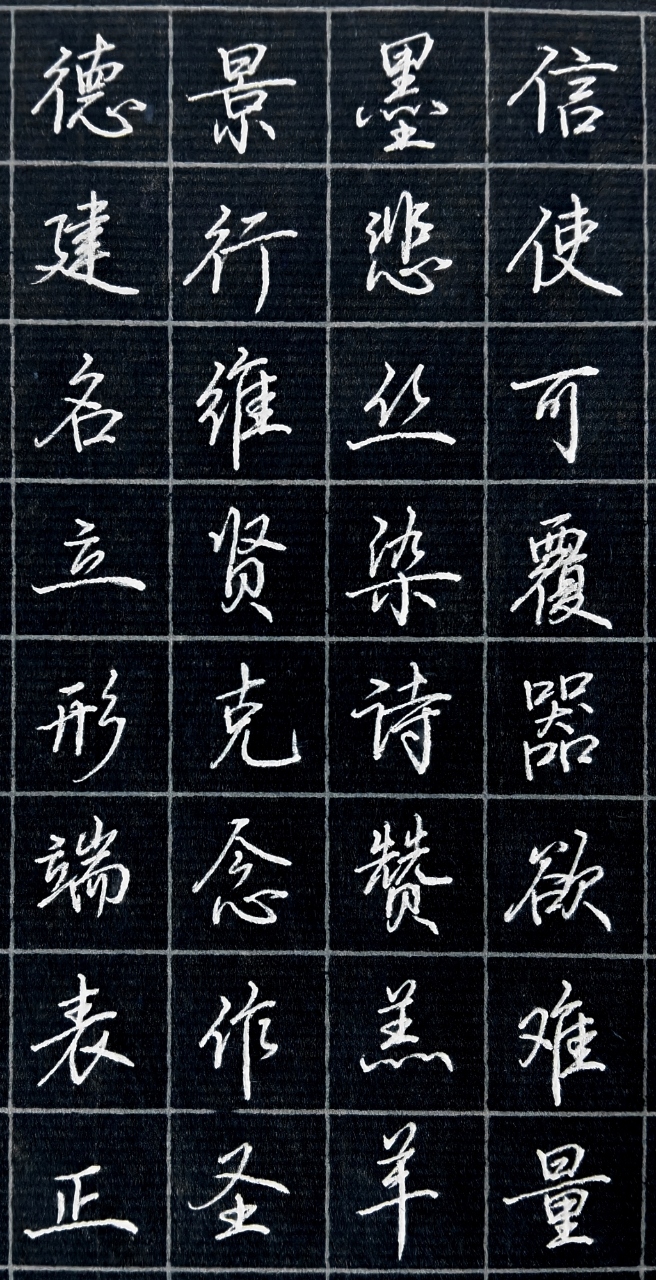 信使可覆器欲难量
墨悲丝染诗赞羔羊
景行维贤克念作圣
德建名立形端表正